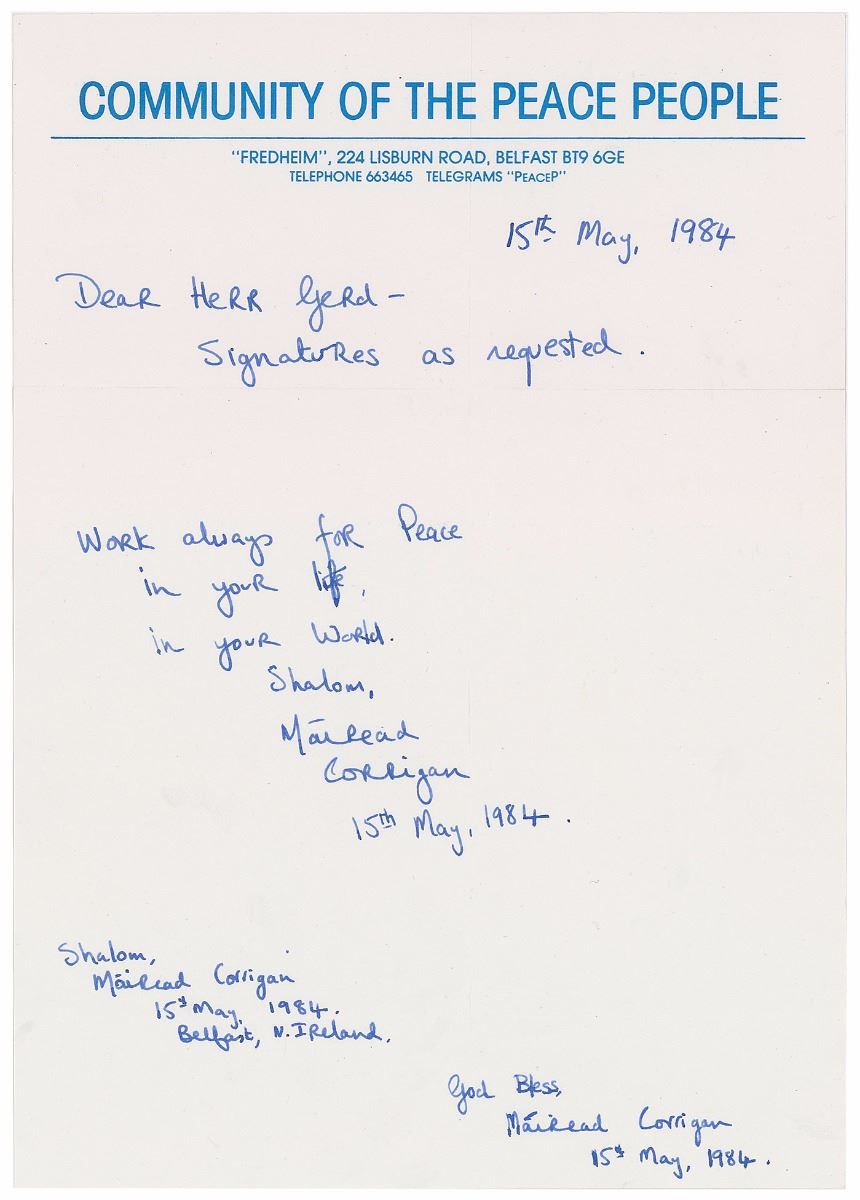 COMMUNITY OF THE PEACE PEOPLE
"FREDHEIM", 224 LISBURN ROAD, BELFAST BT9 6GE
TELEPHONE 663465 TELEGRAMS "PEACEP"
15th May, 1984
Dear Herr Gerd -
Signatures as requested.
Work always for Peace
in your life,
in your World.
Shalom,
Máiread
Corrigan
15th May, 1984.
Shalom,
Máiread Corrigan
15th May, 1984.
Belfast, N. Ireland.
God Bless,
Máiread Corrigan
15th May, 1984.